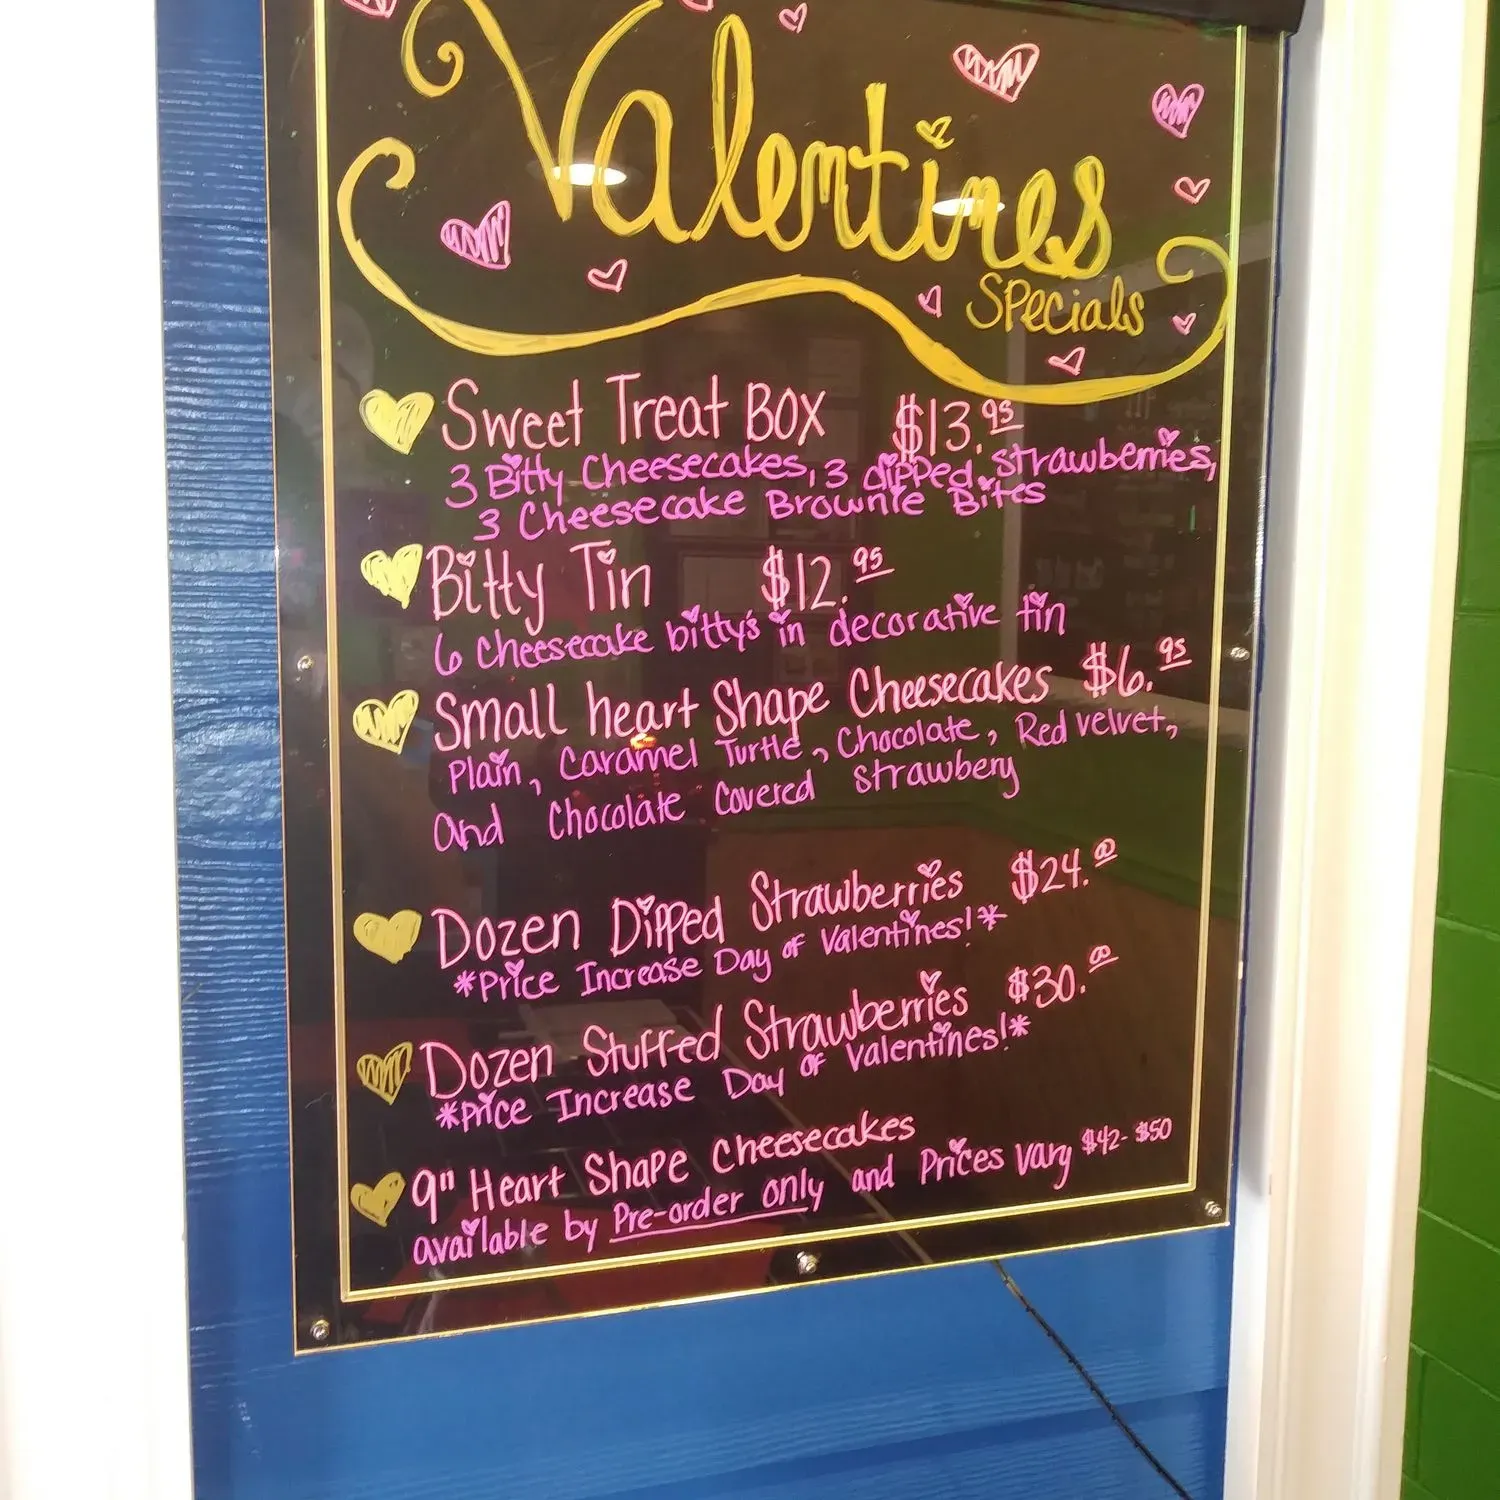 Valentines
Specials
Sweet Treat Box $13.95
3 Bitty Cheesecakes, 3 dipped strawberries,
3 Cheesecake Brownie Bites
Bitty Tin $12.95
6 cheesecake bitty's in decorative tin
Small heart Shape Cheesecakes $6.95
Plain, Caramel Turtle, Chocolate, Red velvet,
and Chocolate Covered Strawberry
Dozen Dipped Strawberries $24.00
*Price Increase Day of Valentines!*
Dozen Stuffed Strawberries $30.00
*Price Increase Day of Valentines!*
9" Heart Shape Cheesecakes
available by Pre-order only and Prices vary $42-$50